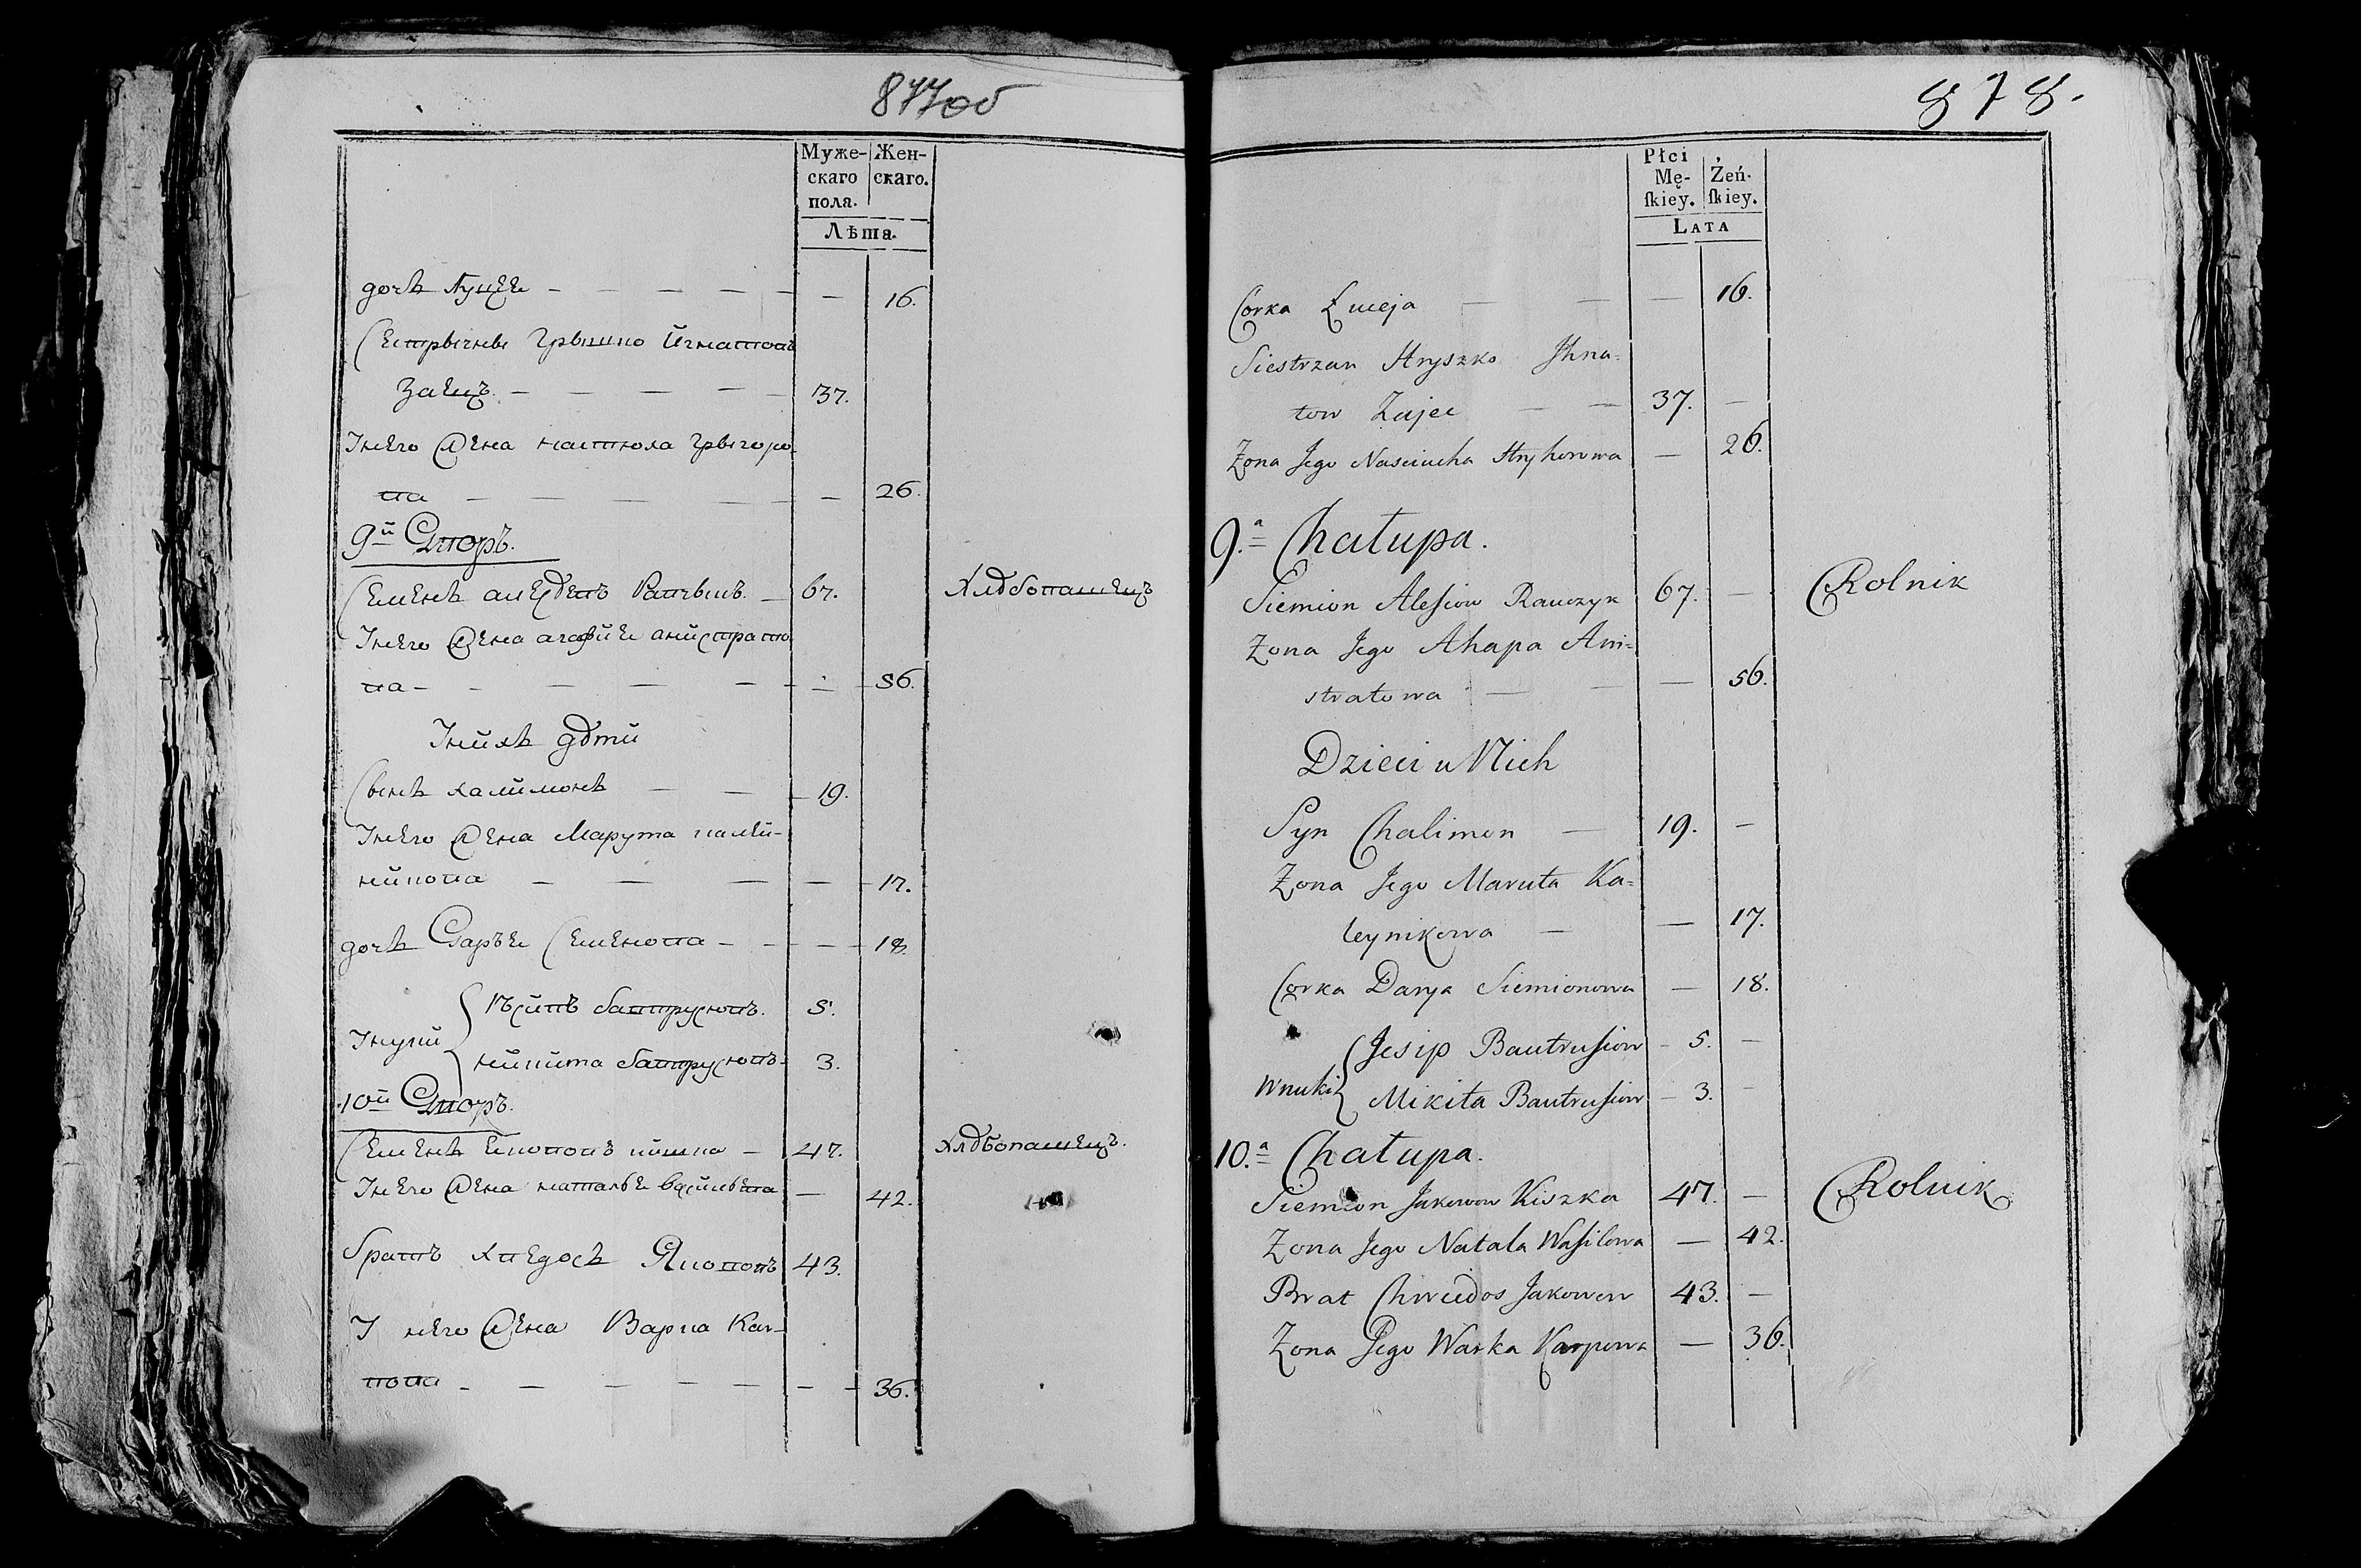 877об
Муже-
скаго
пола.
Жен-
скаго.
Лѣта.
дочь Луцея — 16.
Сестрычнъ Грышко Игнатовъ
Заецъ — 37.
У него жена Настюха Грыгоро
ва — 26.
9й Дворъ.
Семенъ Алесѣевъ Равчыкъ — 67. Хлѣбопашецъ
У него жена Агафия Анистрато
ва — 56.
У нихъ дѣти
Сынъ Халимонъ — 19.
У него жена Марута Калей-
никова — 17.
дочь Дарья Семенова — 18.
Внуки { Есипъ Бавтрусювъ. 5.
Никита Бавтрусювъ. 3.
10й Дворъ.
Семенъ Яковов Кишка — 47. Хлѣбопашецъ.
У него жена Наталья Василева — 42.
Братъ Хведосъ Яковов 43.
У него жена Варка Кар-
пова — 36.
878.
Płci
Mę-
ſkiey.
Żeń-
ſkiey.
LATA
Corka Łuceja — — — 16.
Siestrzan Hryszko Jhna=
tow Zajec — — 37. —
Zona Jego Nasciucha Hryhorowa — 26.
9.a Chałupa.
Siemion Aleſiow Rawczyk 67. — Rolnik
Zona Jego Ahapa Ani=
stratowa — — — 56.
Dzieci u Nich
Syn Chalimon — 19. —
Zona Jego Maruta Ka=
leynikowa — — 17.
Corka Darya Siemionowa — 18.
Wnuki { Jesip Bautruſiow — 5. —
Mikita Bautruſiow — 3. —
10.a Chałupa.
Siemion Jakowow Kiszka 47. — Rolnik
Zona Jego Natala Waſilowa — 42.
Brat Chwedos Jakowow 43. —
Zona Jego Warka Karpowa — 36.